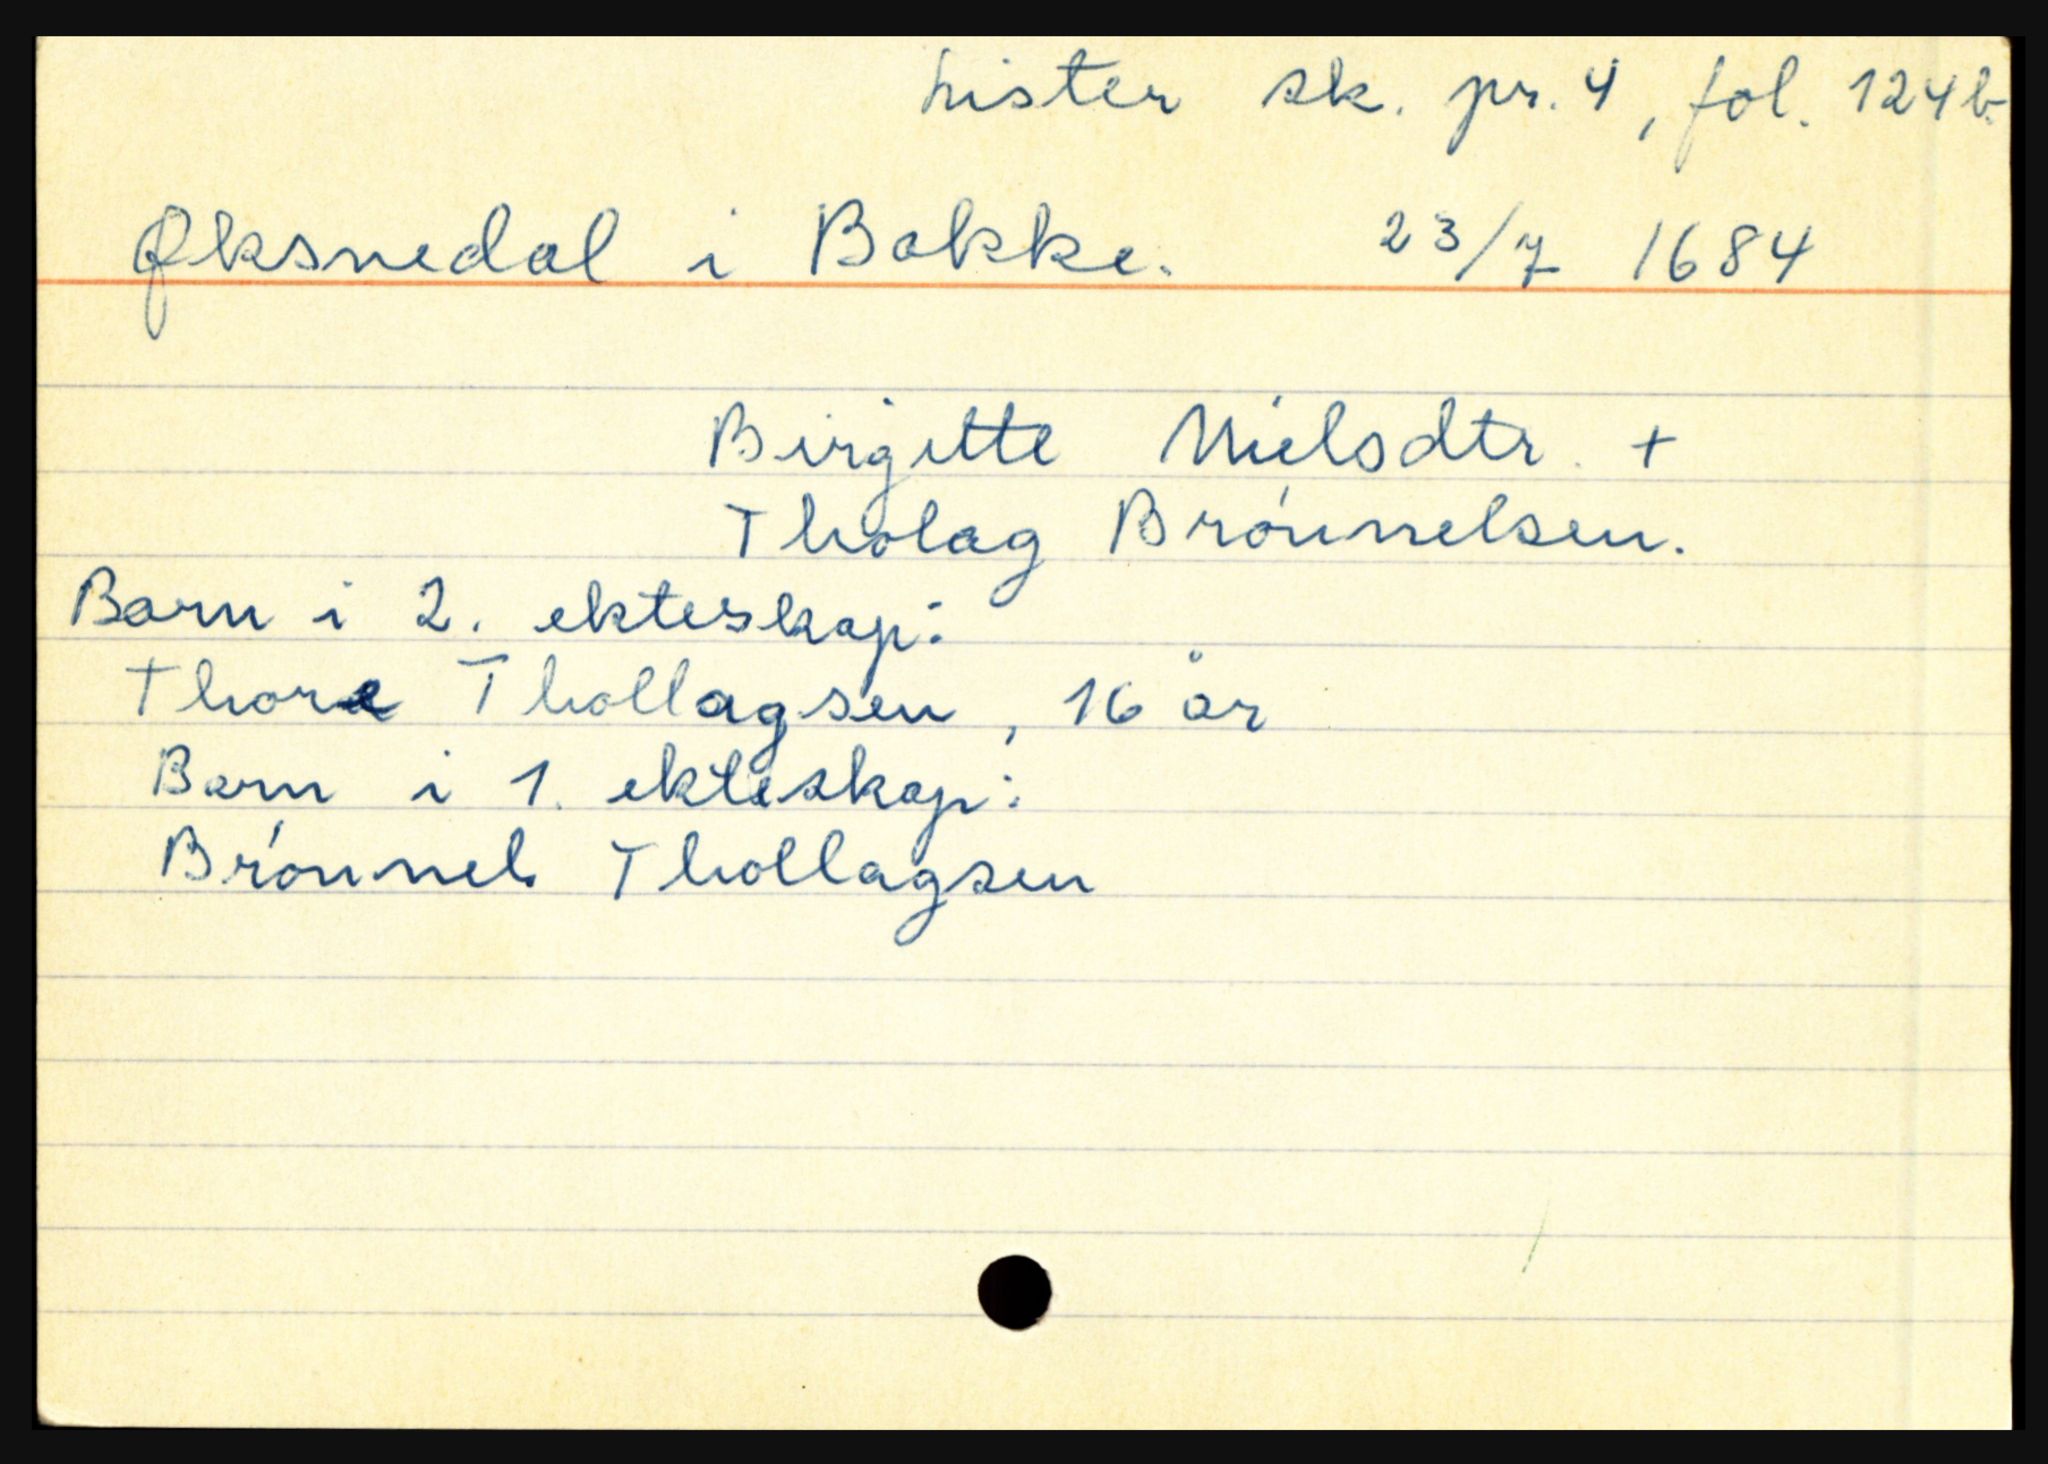 Lister sk. pr. 4, fol. 124b.
Øksnedal i Bakke. 23/7 1684
Birgitte Nielsdtr. +
Tholag Brónnelsen.
Barn i 2. ekteskap:
Thore Thollagsen, 16 år
Barn i 1. ekteskap:
Brónnel Thollagsen